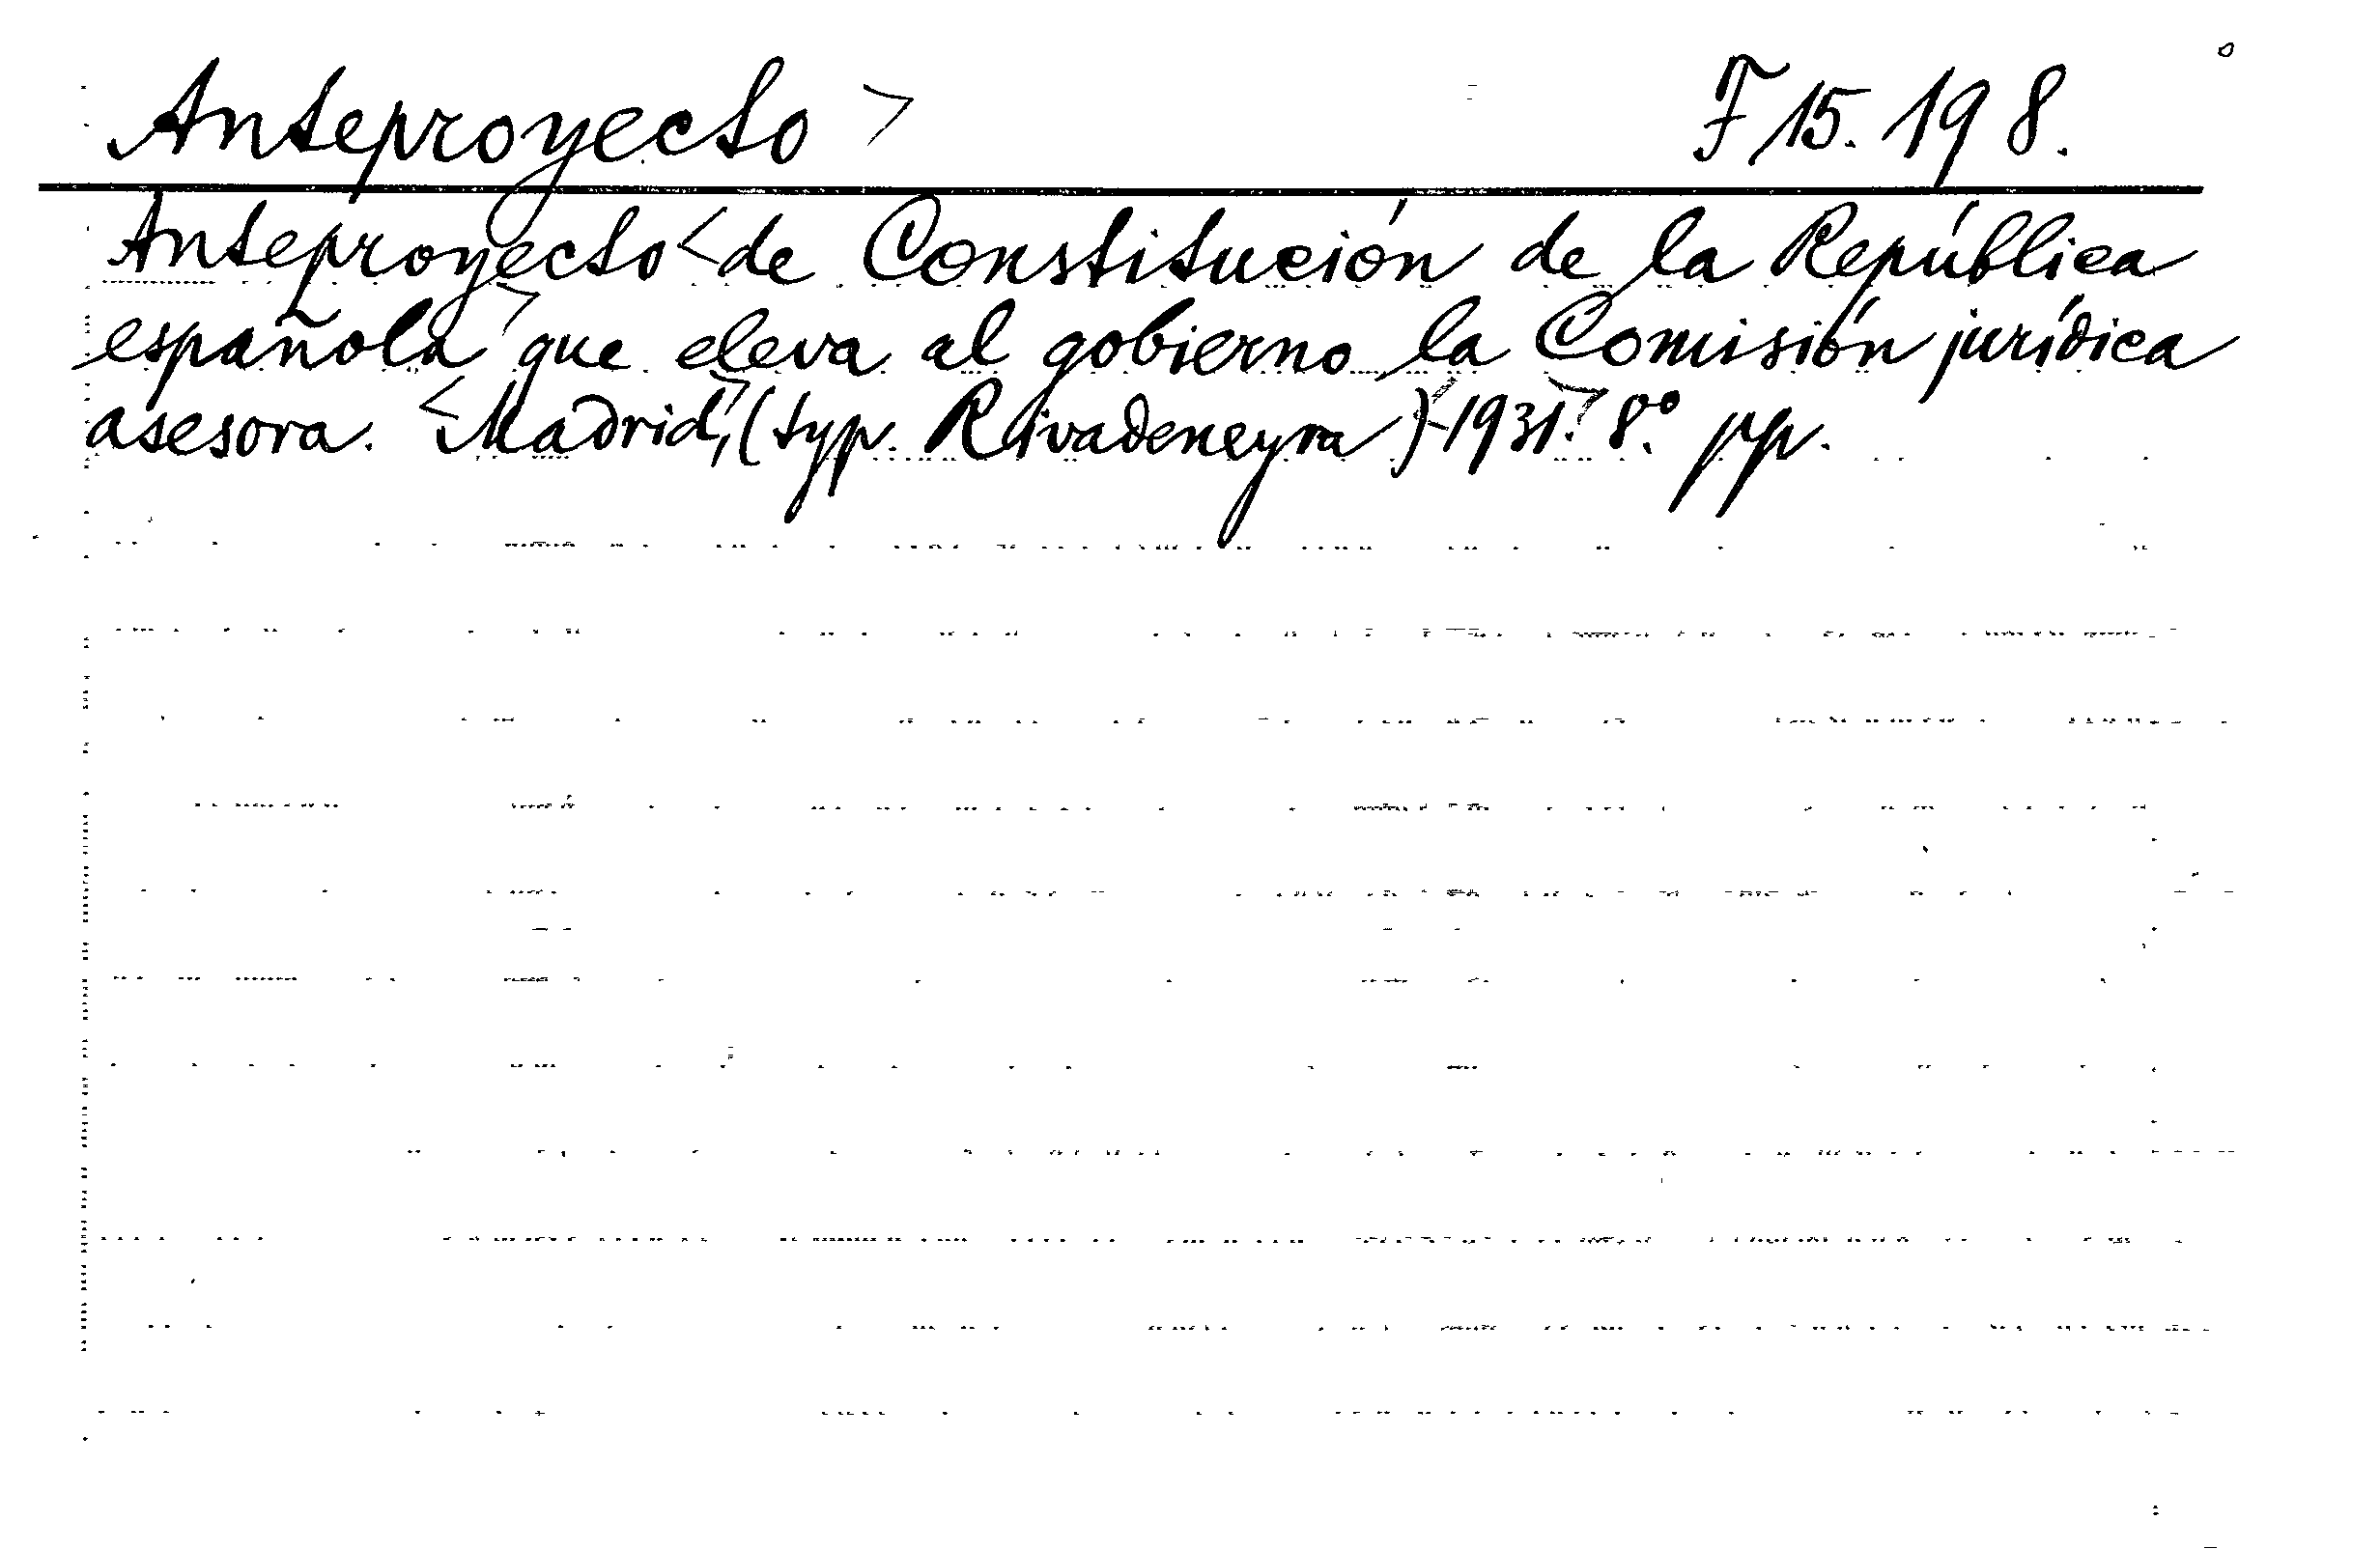 Anteproyecto > F 15.198.
Anteproyecto < de Constitución de la República
española > que eleva al gobierno la Comisión jurídica
asesora. < Madrid, > (typ. Rivadeneyra) < 1931. > 8.° pp.